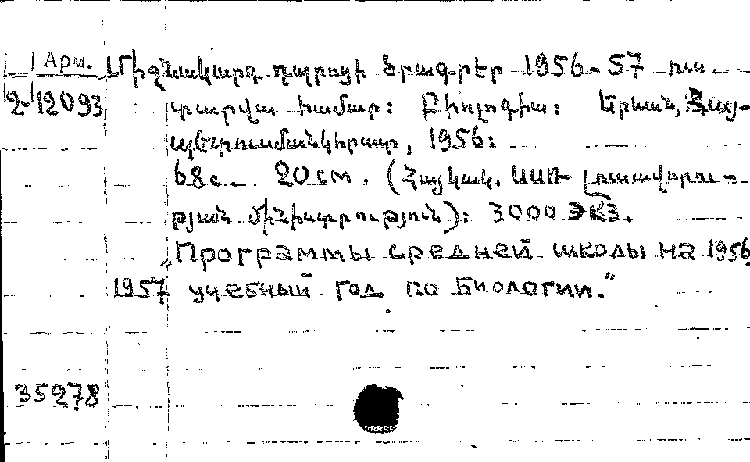 Арм. Միջնակարգ դպրոցի ծրագրեր 1956-57 ուս.
2-12093 տարվա համար: Բիոլոգիա: Երևան, Հայ-
պետուսմանկհրատ, 1956:
68с. 20см. (Հայկակ. ՍՍՌ լուսավորու-
թյան մինիստրություն): 3000 экз.
„Программы средней школы на 1956
1957 учебный год по биологии.“
35278